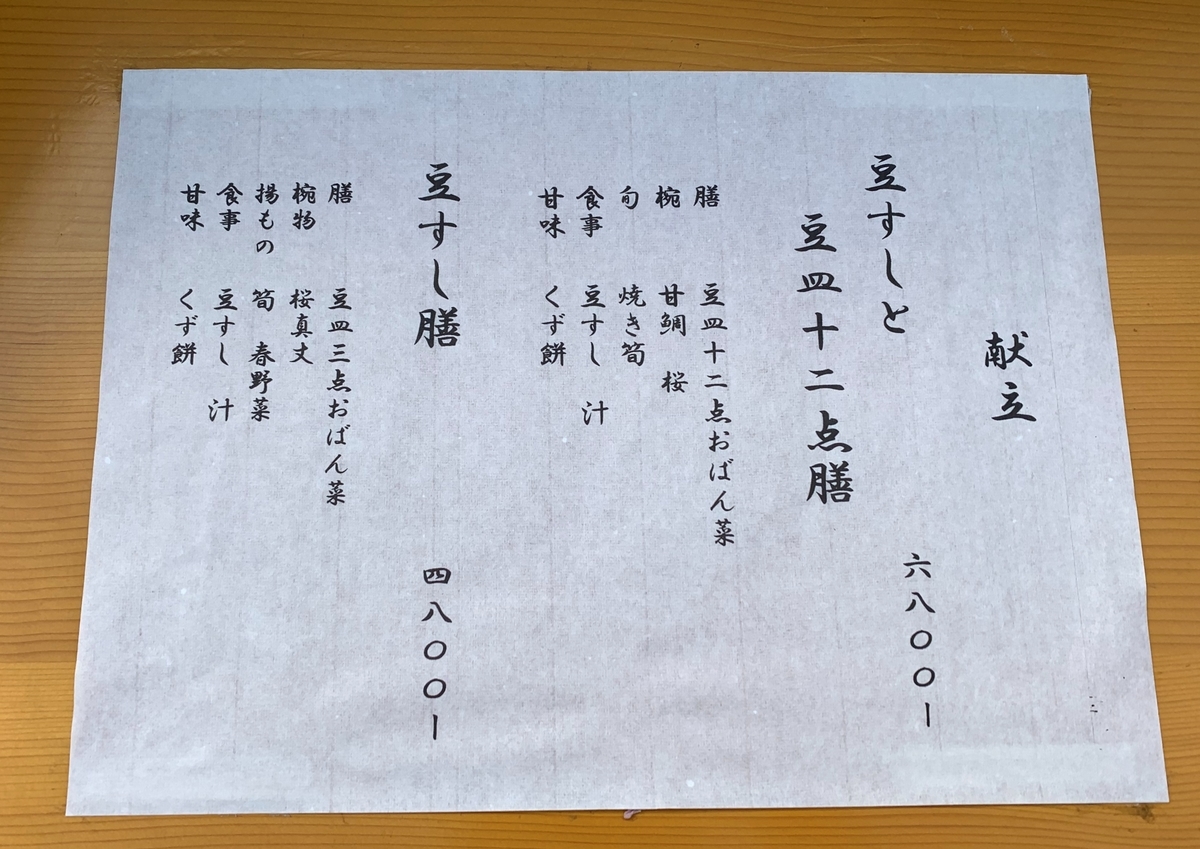 献立
豆すしと
豆皿十二点膳
六八〇〇ー
膳 豆皿十二点おばん菜
椀 甘鯛 桜
旬 焼き筍
食事 豆すし 汁
甘味 くず餅
豆すし膳
四八〇〇ー
膳 豆皿三点おばん菜
椀物 桜真丈
揚もの 筍 春野菜
食事 豆すし 汁
甘味 くず餅